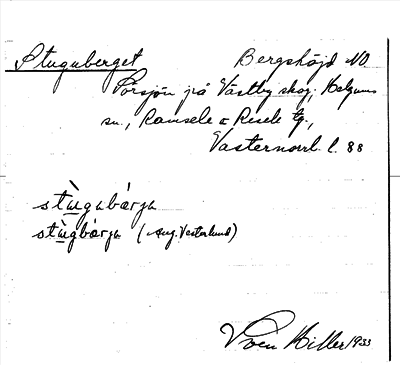 Stuguberget Bergshöjd NO
Porsjön på Västby skog, Helgums
sn., Ramsele o Resele tg.,
Västernorrl. l. 88
stùgubárja
stùgbárja (Aug. Vesterlund)
Sven Hiller 1933